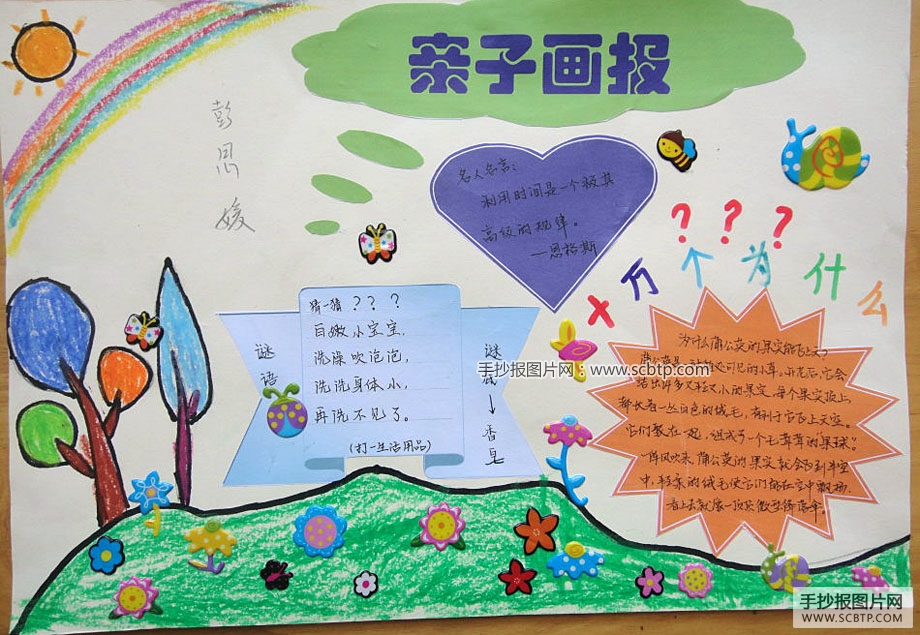 亲子画报
彭思媛
名人名言:
利用时间是一个极其
高级的规律。
—恩格斯
? ? ?
十万个为什么
谜语
猜一猜???
白嫩小宝宝,
洗澡吹泡泡,
洗洗身体小,
再洗不见了。
(打一生活用品)
谜底→香皂
为什么蒲公英的果实能飞上天?
蒲公英是 处可见的小草,开花后,它会
结出许多又轻又小的果实,每个果实顶上
都长着一丛白色的绒毛,有利于它飞上天空。
它们聚在一起,组成了一个毛茸茸的"果球"。
一阵风吹来,蒲公英的果实就会 到半空
中,轻柔的绒毛使它们能在空中飘扬,
看上去就像一顶顶微型降落伞。
手抄报图片网:www.scbtp.com
手抄报图片网
WWW.SCBTP.COM